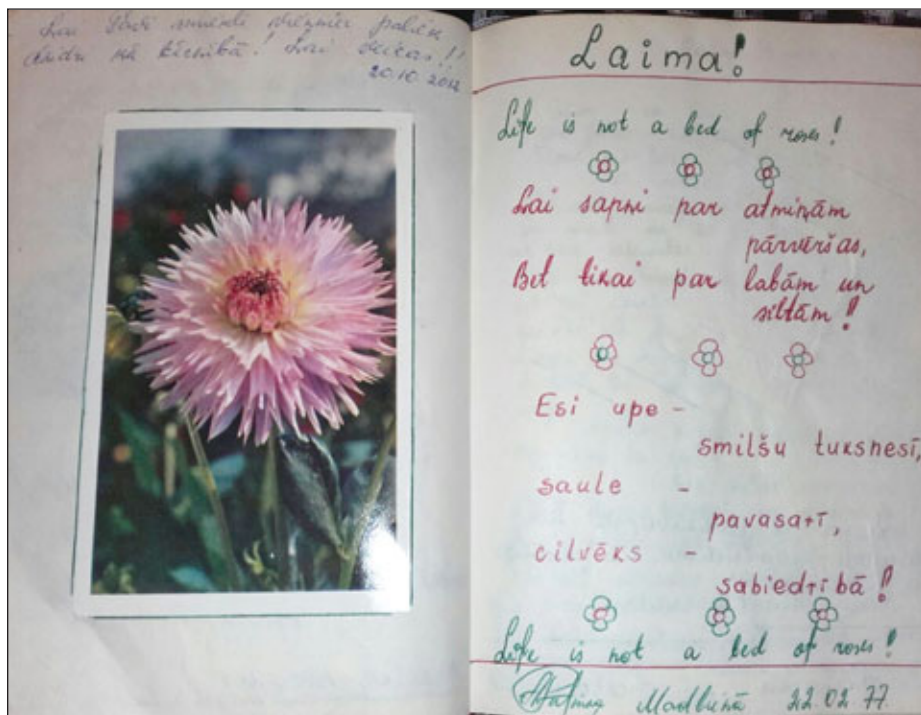 Lai
kā Lai
20.10.2012
Laima!
Life is not a bed of roses!
Lai sapņi par atmiņām
pārvēršas,
Bet tikai par labām un
siltām!
Esi upe -
smilšu tuksnesī,
saule -
pavasarī,
cilvēks -
sabiedrībā!
Life is not a bed of roses!
Madlienā 22.02.77.